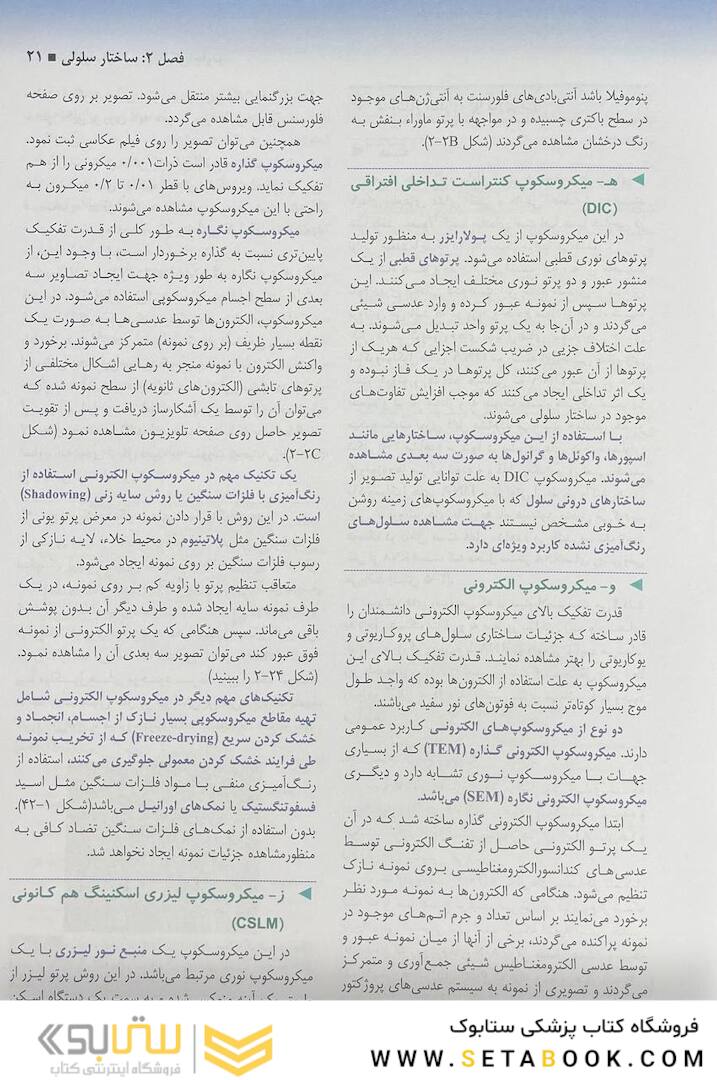 فصل ۲: ساختار سلولی ■ ۲۱
پنوموفیلا باشد آنتی‌بادی‌های فلورسنت به آنتی‌ژن‌های موجود
در سطح باکتری چسبیده و در مواجهه با پرتو ماوراء بنفش به
رنگ درخشان مشاهده می‌گردند (شکل ۲B-۲).
هـ- میکروسکوپ کنتراست تداخلی افتراقی
(DIC)
در این میکروسکوپ از یک پولارایزر به منظور تولید
پرتوهای نوری قطبی استفاده می‌شود. پرتوهای قطبی از یک
منشور عبور و دو پرتو نوری مختلف ایجاد می‌کنند. این
پرتوها سپس از نمونه عبور کرده و وارد عدسی شیئی
می‌گردند و در آن‌جا به یک پرتو واحد تبدیل می‌شوند. به
علت اختلاف جزیی در ضریب شکست اجزایی که هریک از
پرتوها از آن عبور می‌کنند، کل پرتوها در یک فاز نبوده و
یک اثر تداخلی ایجاد می‌کنند که موجب افزایش تفاوت‌های
موجود در ساختار سلولی می‌شوند.
با استفاده از این میکروسکوپ، ساختارهایی مانند
اسپورها، واکوئل‌ها و گرانول‌ها به صورت سه بعدی مشاهده
می‌شوند. میکروسکوپ DIC به علت توانایی تولید تصویر از
ساختارهای درونی سلول که با میکروسکوپ‌های زمینه روشن
به خوبی مشخص نیستند جهت مشاهده سلول‌های
رنگ‌آمیزی نشده کاربرد ویژه‌ای دارد.
و- میکروسکوپ الکترونی
قدرت تفکیک بالای میکروسکوپ الکترونی دانشمندان را
قادر ساخته که جزئیات ساختاری سلول‌های پروکاریوتی و
یوکاریوتی را بهتر مشاهده نمایند. قدرت تفکیک بالای این
میکروسکوپ به علت استفاده از الکترون‌ها بوده که واجد طول
موج بسیار کوتاه‌تر نسبت به فوتون‌های نور سفید می‌باشند.
دو نوع از میکروسکوپ‌های الکترونی کاربرد عمومی
دارند. میکروسکوپ الکترونی گذاره (TEM) که از بسیاری
جهات با میکروسکوپ نوری تشابه دارد و دیگری
میکروسکوپ الکترونی نگاره (SEM) می‌باشد.
ابتدا میکروسکوپ الکترونی گذاره ساخته شد که در آن
یک پرتو الکترونی حاصل از تفنگ الکترونی توسط
عدسی‌های کندانسورالکترومغناطیسی بروی نمونه نازک
تنظیم می‌شود. هنگامی که الکترون‌ها به نمونه مورد نظر
برخورد می‌نمایند بر اساس تعداد و جرم اتم‌های موجود در
نمونه پراکنده می‌گردند، برخی از آنها از میان نمونه عبور و
توسط عدسی الکترومغناطیس شیئی جمع‌آوری و متمرکز
می‌گردند و تصویری از نمونه به سیستم عدسی‌های پروژکتور
جهت بزرگنمایی بیشتر منتقل می‌شود. تصویر بر روی صفحه
فلورسنس قابل مشاهده می‌گردد.
همچنین می‌توان تصویر را روی فیلم عکاسی ثبت نمود.
میکروسکوپ گذاره قادر است ذرات۰/۰۰۱ میکرونی را از هم
تفکیک نماید. ویروس‌های با قطر ۰/۰۱ تا ۰/۲ میکرون به
راحتی با این میکروسکوپ مشاهده می‌شوند.
میکروسکوپ نگاره به طور کلی از قدرت تفکیک
پایین‌تری نسبت به گذاره برخوردار است، با وجود این، از
میکروسکوپ نگاره به طور ویژه جهت ایجاد تصاویر سه
بعدی از سطح اجسام میکروسکوپی استفاده می‌شود. در این
میکروسکوپ، الکترون‌ها توسط عدسی‌ها به صورت یک
نقطه بسیار ظریف (بر روی نمونه) متمرکز می‌شوند. برخورد و
واکنش الکترون با نمونه منجر به رهایی اشکال مختلفی از
پرتوهای تابشی (الکترون‌های ثانویه) از سطح نمونه شده که
می‌توان آن را توسط یک آشکارساز دریافت و پس از تقویت
تصویر حاصل روی صفحه تلویزیون مشاهده نمود (شکل
۲C-۲).
یک تکنیک مهم در میکروسکوپ الکترونی استفاده از
رنگ‌آمیزی با فلزات سنگین یا روش سایه زنی (Shadowing)
است. در این روش با قرار دادن نمونه در معرض پرتو یونی از
فلزات سنگین مثل پلاتینیوم در محیط خلاء، لایه نازکی از
رسوب فلزات سنگین بر روی نمونه ایجاد می‌شود.
متعاقب تنظیم پرتو با زاویه کم بر روی نمونه، در یک
طرف نمونه سایه ایجاد شده و طرف دیگر آن بدون پوشش
باقی می‌ماند. سپس هنگامی که یک پرتو الکترونی از نمونه
فوق عبور کند می‌توان تصویر سه بعدی آن را مشاهده نمود.
(شکل ۲۴-۲ را ببینید)
تکنیک‌های مهم دیگر در میکروسکوپ الکترونی شامل
تهیه مقاطع میکروسکوپی بسیار نازک از اجسام، انجماد و
خشک کردن سریع (Freeze-drying) که از تخریب نمونه
طی فرایند خشک کردن معمولی جلوگیری می‌کنند، استفاده از
رنگ‌آمیزی منفی با مواد فلزات سنگین مثل اسید
فسفوتنگستیک یا نمک‌های اورانیل می‌باشد(شکل ۱-۴۲).
بدون استفاده از نمک‌های فلزات سنگین تضاد کافی به
منظورمشاهده جزئیات نمونه ایجاد نخواهد شد.
ز- میکروسکوپ لیزری اسکنینگ هم کانونی
(CSLM)
در این میکروسکوپ یک منبع نور لیزری با یک
میکروسکوپ نوری مرتبط می‌باشد. در این روش پرتو لیزر از
فروشگاه کتاب پزشکی ستابوک
WWW.SETABOOK.COM
ستابوک
فروشگاه اینترنتی کتاب